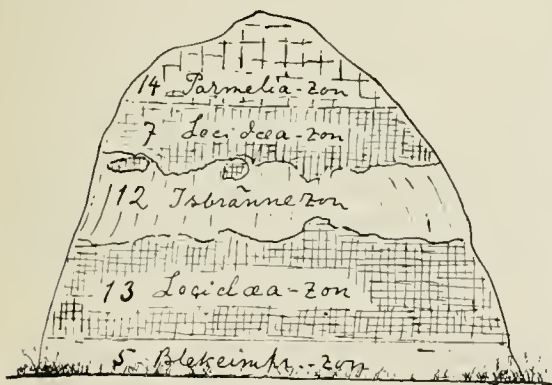 14 Parmelia-zon
7 Lecidæa-zon
12 Isbrännezon
13 Lecidæa-zon
5 -zon